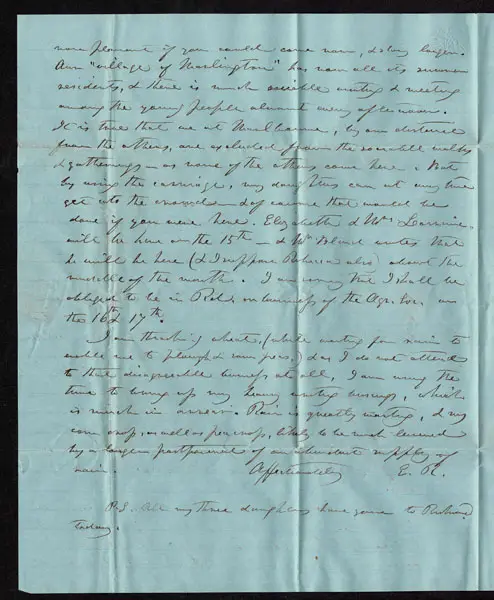 more pleasant if you could come now, & stay longer.
Our "village of Marlington" has now all its summer
residents, & there is much sociable visiting & meeting
among the young people almost every afternoon.
It is true that we at Marlbourne, by our distance
from the others, are excluded from the sociable walks
& gatherings — as none of the others come here. But
by using the carriage, my daughters can at any time
get into the crowd — & of course that would be
done if you were here. Elizabeth & Wm.
will be here on the 15th — & Wm Bland writes that
he will be here (& I suppose Rebecca also) about the
middle of the month. I am sorry that I shall be
obliged to be in Richd. on business of the Agr. Soc. on
the 16th & 17th.
I am thrashing wheat, (while waiting for rain to
enable me to plough & sow peas.) & as I do not attend
to that disagreeable business at all, I am using the
time to bring up my heavy writing business, which
is much in arrear. Rain is greatly wanting, & my
corn crop, as well as pea crop, likely to be much lessened
by a longer postponement of an abundant supply of
rain. Affectionately E. R.
P.S. All my three daughters have gone to Richmond
today.